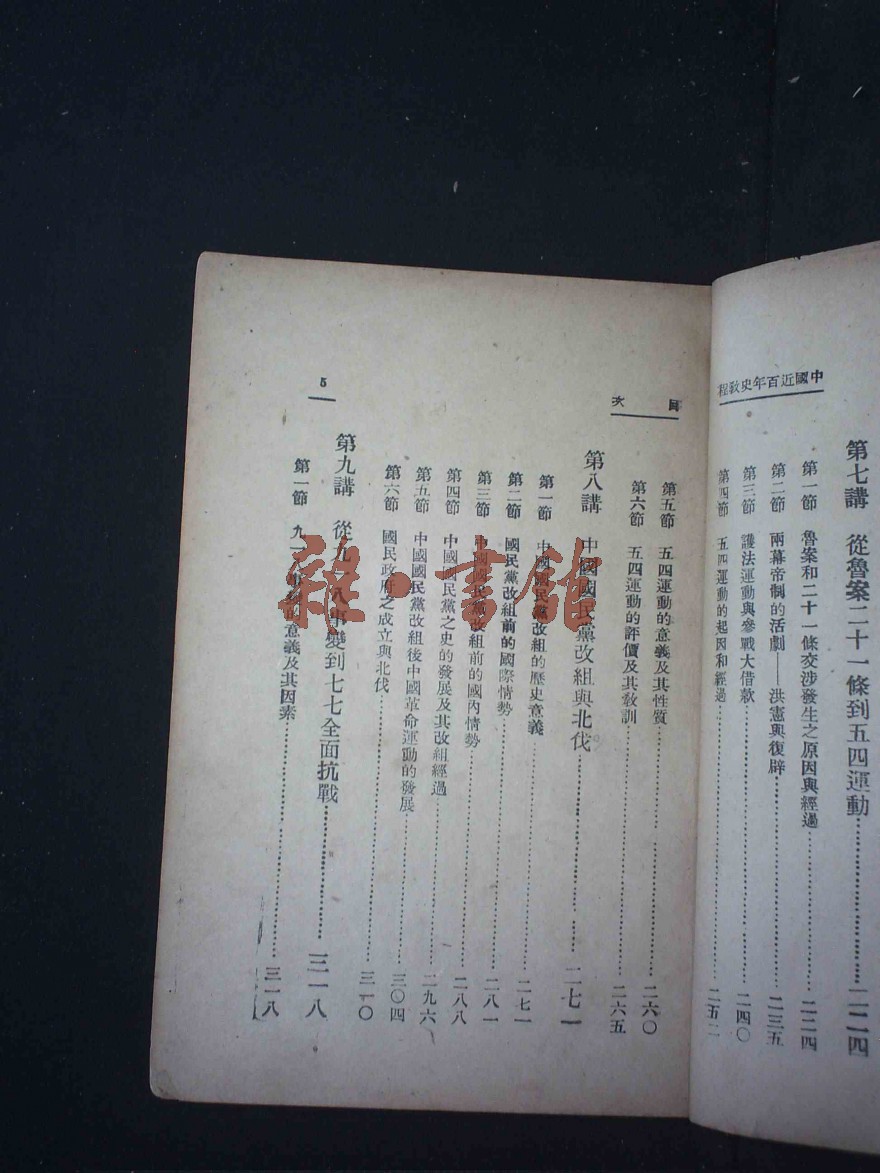 中國近百年史教程
第七講 從魯案二十一條到五四運動……二二四
第一節 魯案和二十一條交涉發生之原因與經過……二二四
第二節 兩幕帝制的活劇——洪憲與復辟……二三五
第三節 護法運動與參戰大借款……二四〇
第四節 五四運動的起因和經過……二五二
目次
第五節 五四運動的意義及其性質……二六〇
第六節 五四運動的評價及其教訓……二六五
第八講 中國國民黨改組與北伐……二七一
第一節 中國國民黨改組的歷史意義……二七一
第二節 國民黨改組前的國際情勢……二八一
第三節 中國國民黨改組前的國內情勢……二八八
第四節 中國國民黨之史的發展及其改組經過……二九六
第五節 中國國民黨改組後中國革命運動的發展……三〇四
第六節 國民政府之成立與北伐……三一〇
第九講 從九一八事變到七七全面抗戰……三一八
第一節 九一八事變的意義及其因素……三一八
5
雜·書館